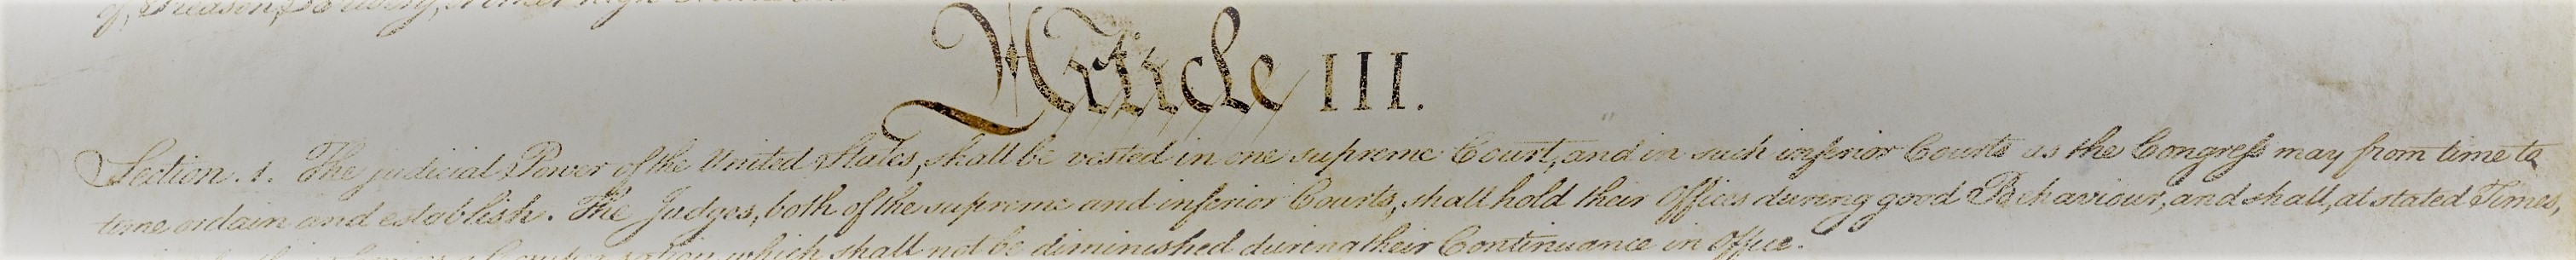 of, Treason, Bribery, or other high Crimes and
Article III.
Section. 1. The judicial Power of the United States, shall be vested in one supreme Court, and in such inferior Courts as the Congress may from time to
time ordain and establish. The Judges, both of the supreme and inferior Courts, shall hold their Offices during good Behaviour, and shall, at stated Times,
Compensation, which shall not be diminished during their Continuance in Office.